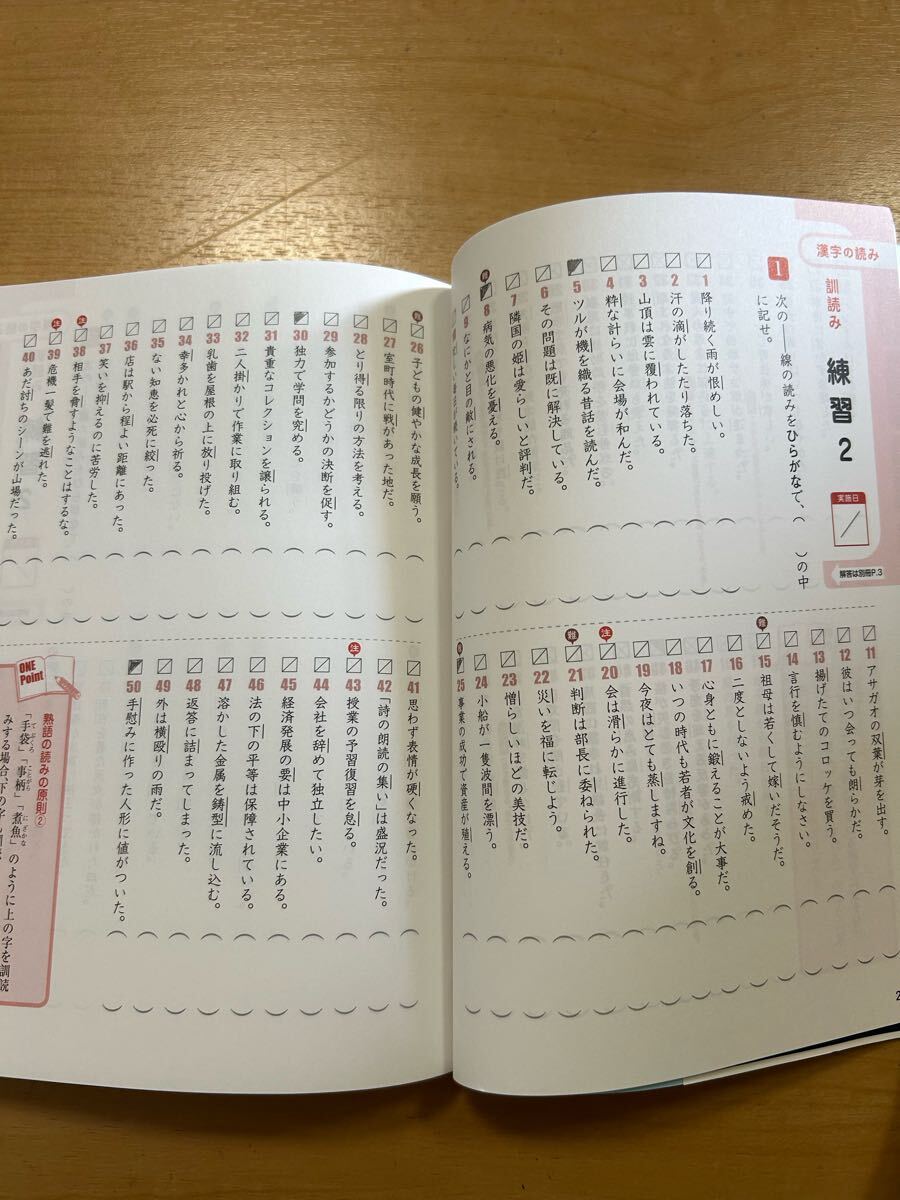 漢字の読み
訓読み
練習2
実施日
解答は別冊P.3
1 次の――線の読みをひらがなで、（ ）の中に記せ。
1 降り続く雨が恨めしい。
2 汗の滴がしたたり落ちた。
3 山頂は雲に覆われている。
4 粋な計らいに会場が和んだ。
5 ツルが機を織る昔話を読んだ。
6 その問題は既に解決している。
7 隣国の姫は愛らしいと評判だ。
難
8 病気の悪化を憂える。
9 なにかと目の敵にされる。
11 アサガオの双葉が芽を出す。
12 彼はいつ会っても朗らかだ。
13 揚げたてのコロッケを買う。
14 言行を慎むようにしなさい。
難
15 祖母は若くして嫁いだそうだ。
16 二度としないよう戒めた。
17 心身ともに鍛えることが大事だ。
18 いつの時代も若者が文化を創る。
19 今夜はとても蒸しますね。
注
20 会は滑らかに進行した。
難
21 判断は部長に委ねられた。
22 災いを福に転じよう。
23 憎らしいほどの美技だ。
24 小船が一隻波間を漂う。
25 事業の成功で資産が殖える。
26 子どもの健やかな成長を願う。
27 室町時代に戦があった地だ。
28 とり得る限りの方法を考える。
29 参加するかどうかの決断を促す。
30 独力で学問を究める。
31 貴重なコレクションを譲られる。
32 二人掛かりで作業に取り組む。
33 乳歯を屋根の上に放り投げた。
34 幸多かれと心から祈る。
35 ない知恵を必死に絞った。
36 店は駅から程よい距離にあった。
37 笑いを抑えるのに苦労した。
注
38 相手を脅すようなことはするな。
注
39 危機一髪で難を逃れた。
40 あだ討ちのシーンが山場だった。
41 思わず表情が硬くなった。
42 「詩の朗読の集い」は盛況だった。
注
43 授業の予習復習を怠る。
44 会社を辞めて独立したい。
45 経済発展の要は中小企業にある。
46 法の下の平等は保障されている。
47 溶かした金属を鋳型に流し込む。
48 返答に詰まってしまった。
49 外は横殴りの雨だ。
50 手慰みに作った人形に値がついた。
ONE Point
熟語の読みの原則②
「手袋」「事柄」「煮魚」のように上の字を訓読
てぶくろ
ことがら
にざかな
みする場合、下の字も訓